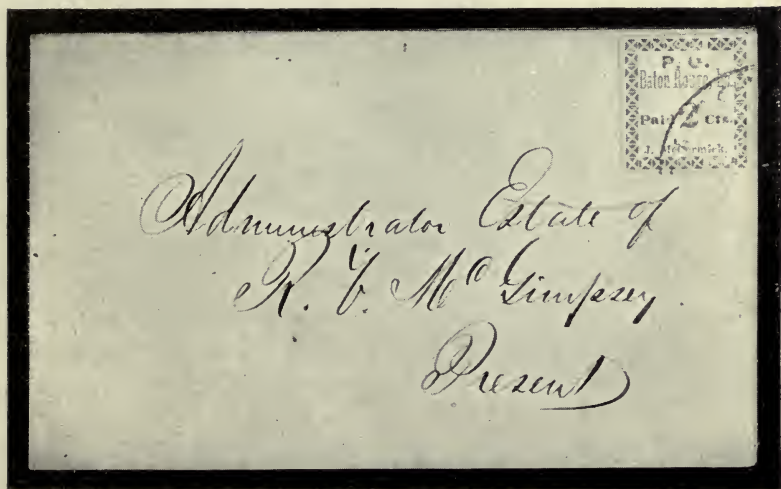 P. O.
Baton Rouge, La.
Paid 2 Cts.
J. McCormick.
Administrator Estate of
R. McGimpsey
Present